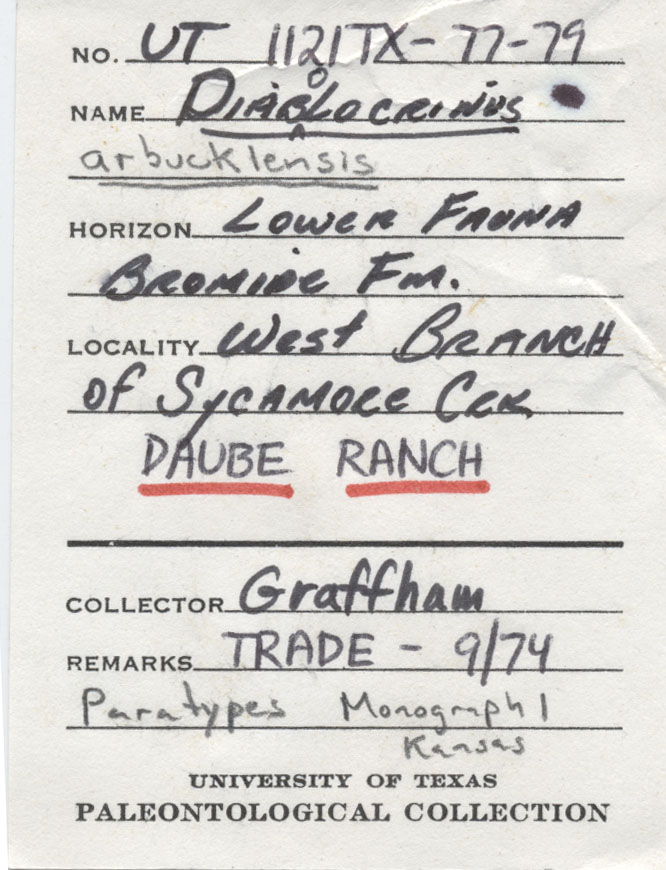 NO. UT 1121TX-77-79
NAME DIABOLOCRINUS
arbucklensis
HORIZON LOWER FAUNA
BROMIDE FM.
LOCALITY West BRANCH
of SYCAMORE CRK
DAUBE RANCH
COLLECTOR Graffham
REMARKS TRADE - 9/74
Paratypes Monograph 1
Kansas
UNIVERSITY OF TEXAS
PALEONTOLOGICAL COLLECTION